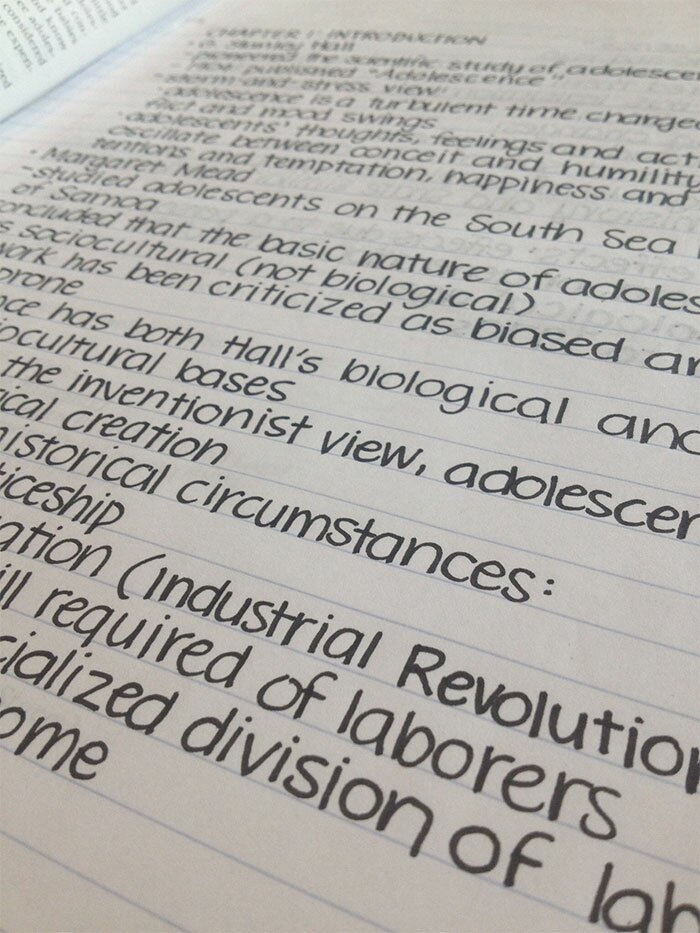 CHAPTER 1: INTRODUCTION
• G. Stanley Hall
- pioneered the scientific study of adolesce
- published "Adolescence",
- storm-and-stress view:
adolescence is a turbulent time charged
and mood swings
- adolescents' thoughts, feelings and act
oscillate between conceit and humility
tentions and temptation, happiness and
• Margaret Mead
- studied adolescents on the South Sea
of Samoa
oncluded that the basic nature of adoles
s sociocultural (not biological)
work has been criticized as biased an
prone
nce has both Hall's biological and
iocultural bases
the inventionist view, adolescen
ical creation
historical circumstances:
ticeship
ation (Industrial Revolution
ill required of laborers
cialized division of lab
ome